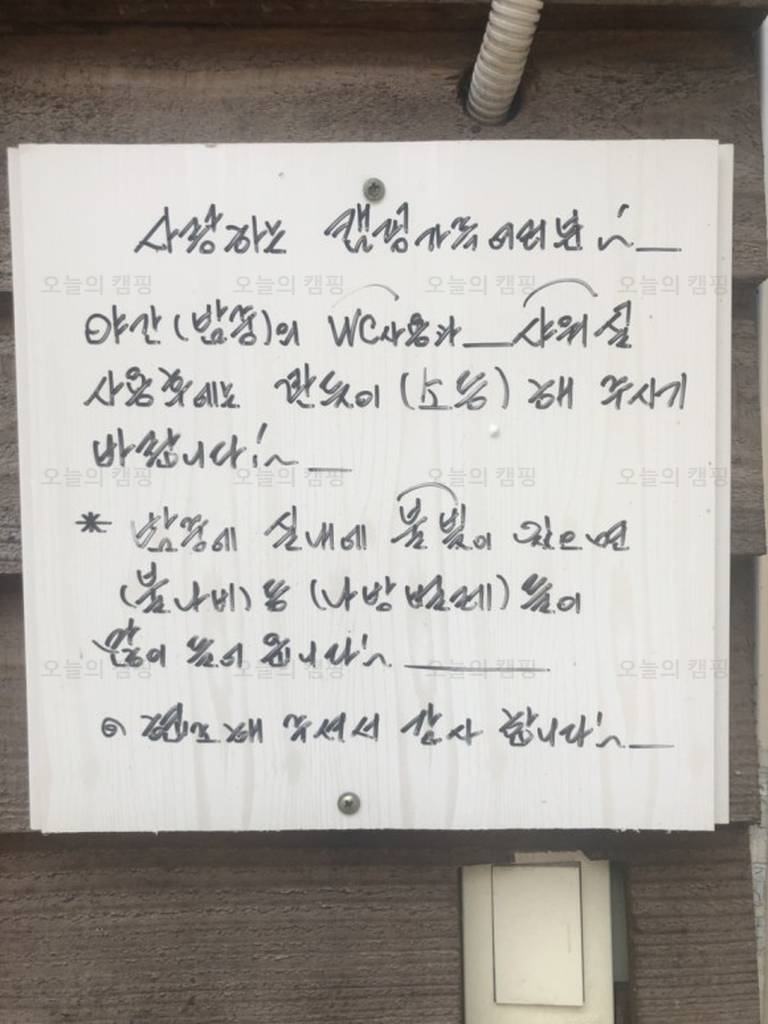 사랑하는 캠핑가족여러분!~
야간(밤중)의 WC사용과 샤워실
사용후에는 반듯이 (소등) 해 주시기
바랍니다!~
* 밤중에 실내에 불빛이 있으면
(불나비) 등 (나방벌레) 들이
많이 들어 옵니다!~
⊙ 협조해 주셔서 감사 합니다!~
오늘의 캠핑 오늘의 캠핑 오늘의 캠핑 오늘의 캠핑
오늘의 캠핑 오늘의 캠핑 오늘의 캠핑 오늘의 캠핑
오늘의 캠핑 오늘의 캠핑 오늘의 캠핑 오늘의 캠핑